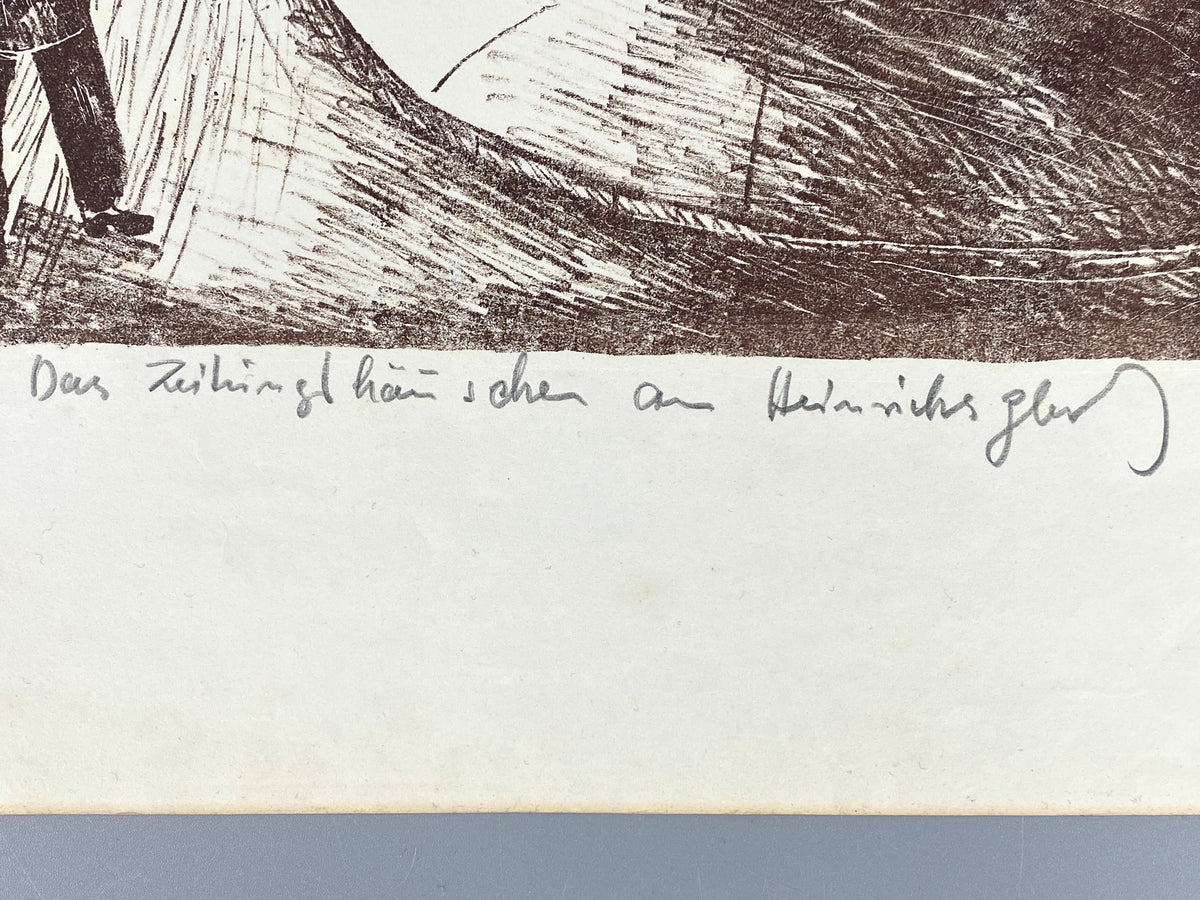 Das Zeitungshäuschen am Heinrichsplatz